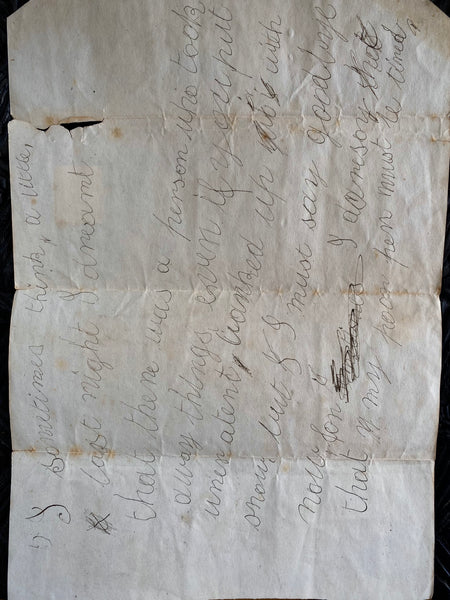 ") I sometimes think, a little,
last night I dreamt
that there was a person who took
away things even if you put
umeratent, banked up with
snow but I must say goodbye
now for I daresay that
that my poor pen must be tired.